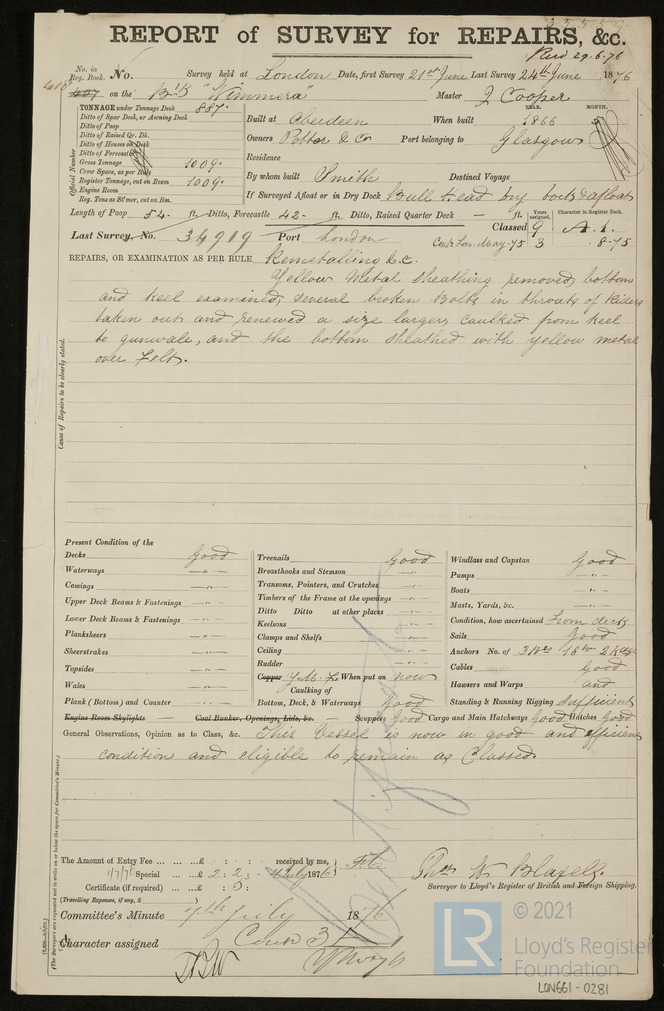 REPORT of SURVEY for REPAIRS, &c.
Recd 29.6.76
No. in Reg. Book. No. Survey held at London Date, first Survey 21st June Last Survey 24th June 1876
407 on the Bk "Wimmera" Master J Cooper
TONNAGE under Tonnage Deck 887.
Ditto of Spar Deck, or Awning Deck
Ditto of Poop
Ditto of Raised Qr. Dk.
Ditto of Houses on Deck
Ditto of Forecastle
Gross Tonnage 1009.
Crew Space, as per Rule
Register Tonnage, cut on Beam 1009.
Engine Room
Reg. Tons as St'mer, cut on Bm.
Official Number
YEAR. MONTH.
Built at Aberdeen When built 1866
Owners Potter & Co Port belonging to Glasgow
Residence
By whom built Smith Destined Voyage
If Surveyed Afloat or in Dry Dock Bull Head dry dock & afloat
Length of Poop 54. ft. Ditto, Forecastle 42. ft. Ditto, Raised Quarter Deck — ft.
Years assigned. Character in Register Book.
Classed 9 A.1.
Last Survey, No. 34919 Port London Contd Lon. May-75 3 8-75
REPAIRS, OR EXAMINATION AS PER RULE Remetalling &c.
Yellow Metal sheathing removed, bottom
and keel examined, several broken bolts in throats of Riders
taken out and renewed a size larger, caulked from keel
to gunwale, and the bottom sheathed with yellow metal
over Felt.
Cause of Repairs to be clearly stated.
Present Condition of the
Decks Good
Waterways —"—
Comings —"—
Upper Deck Beams & Fastenings —"—
Lower Deck Beams & Fastenings —"—
Planksheers —"—
Sheerstrakes —"—
Topsides —"—
Wales —"—
Plank (Bottom) and Counter —"—
Treenails Good
Breasthooks and Stemson —"—
Transoms, Pointers, and Crutches —"—
Timbers of the Frame at the openings —"—
Ditto Ditto at other places —"—
Keelsons —"—
Clamps and Shelfs —"—
Ceiling —"—
Rudder —"—
Copper Y.M. When put on now
Caulking of
Bottom, Deck, & Waterways Good
Windlass and Capstan Good
Pumps —"—
Boats —"—
Masts, Yards, &c. —"—
Condition, how ascertained From deck
Sails Good
Anchors No. of
Cables Good
Hawsers and Warps and
Standing & Running Rigging Sufficient
Engine Room Skylights — Coal Bunker, Openings, Lids, &c. Scuppers Good Cargo and Main Hatchways Good Hatches Good
General Observations, Opinion as to Class, &c. This Vessel is now in good and efficient
condition and eligible to remain as Classed.
The Amount of Entry Fee ... ... ...£ : : received by me,
1/7/76 Special ... ...£ 2 : 2 : July 1876
Certificate (if required) ... ...£ : 5 :
(Travelling Expenses, if any, £ )
Thos W Blaxell
Surveyor to Lloyd's Register of British and Foreign Shipping.
Committee's Minute 7th July 1876
Character assigned Contd 3
(The Surveyors are requested not to write on or below the space for Committee's Minute.)
LR
© 2021
Lloyd's Register
Foundation
LON661-0281